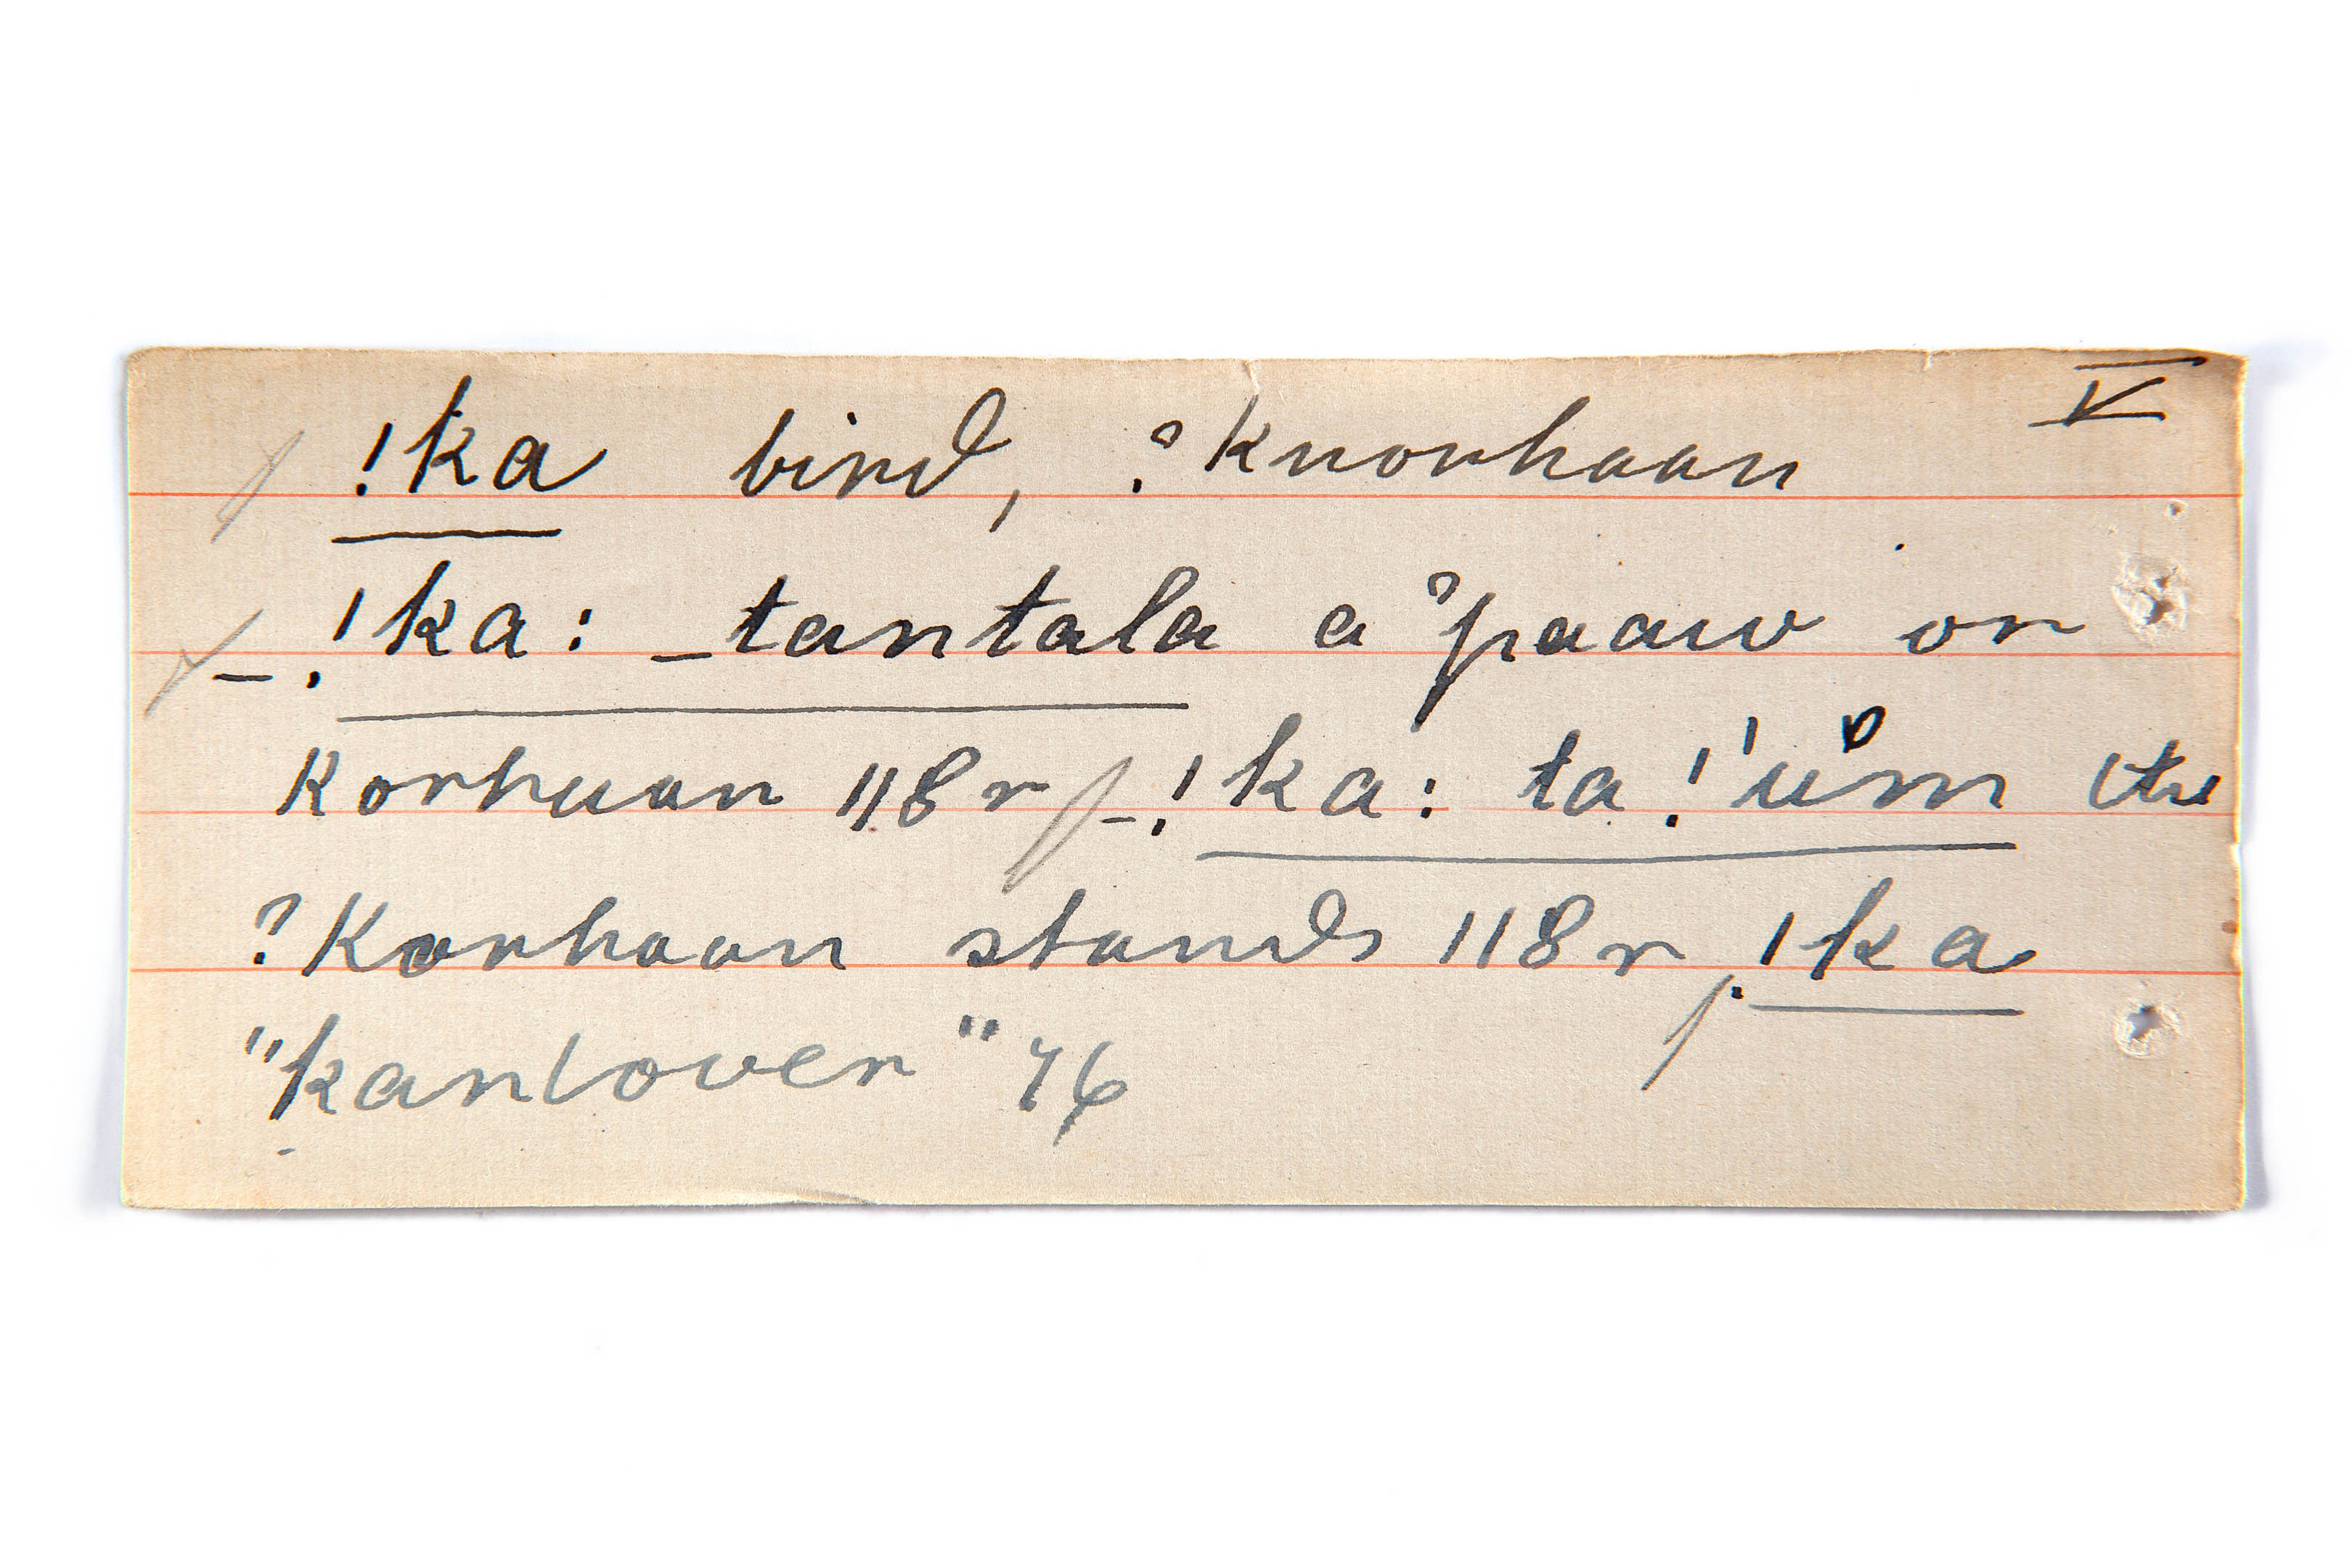 V
!ka bird, ?knorhaan
_!ka: _tantala a ?paauw or
korhaan 118r _!ka: ta !'ům the
?Korhaan stands 118r !ka
"kanlover" 76